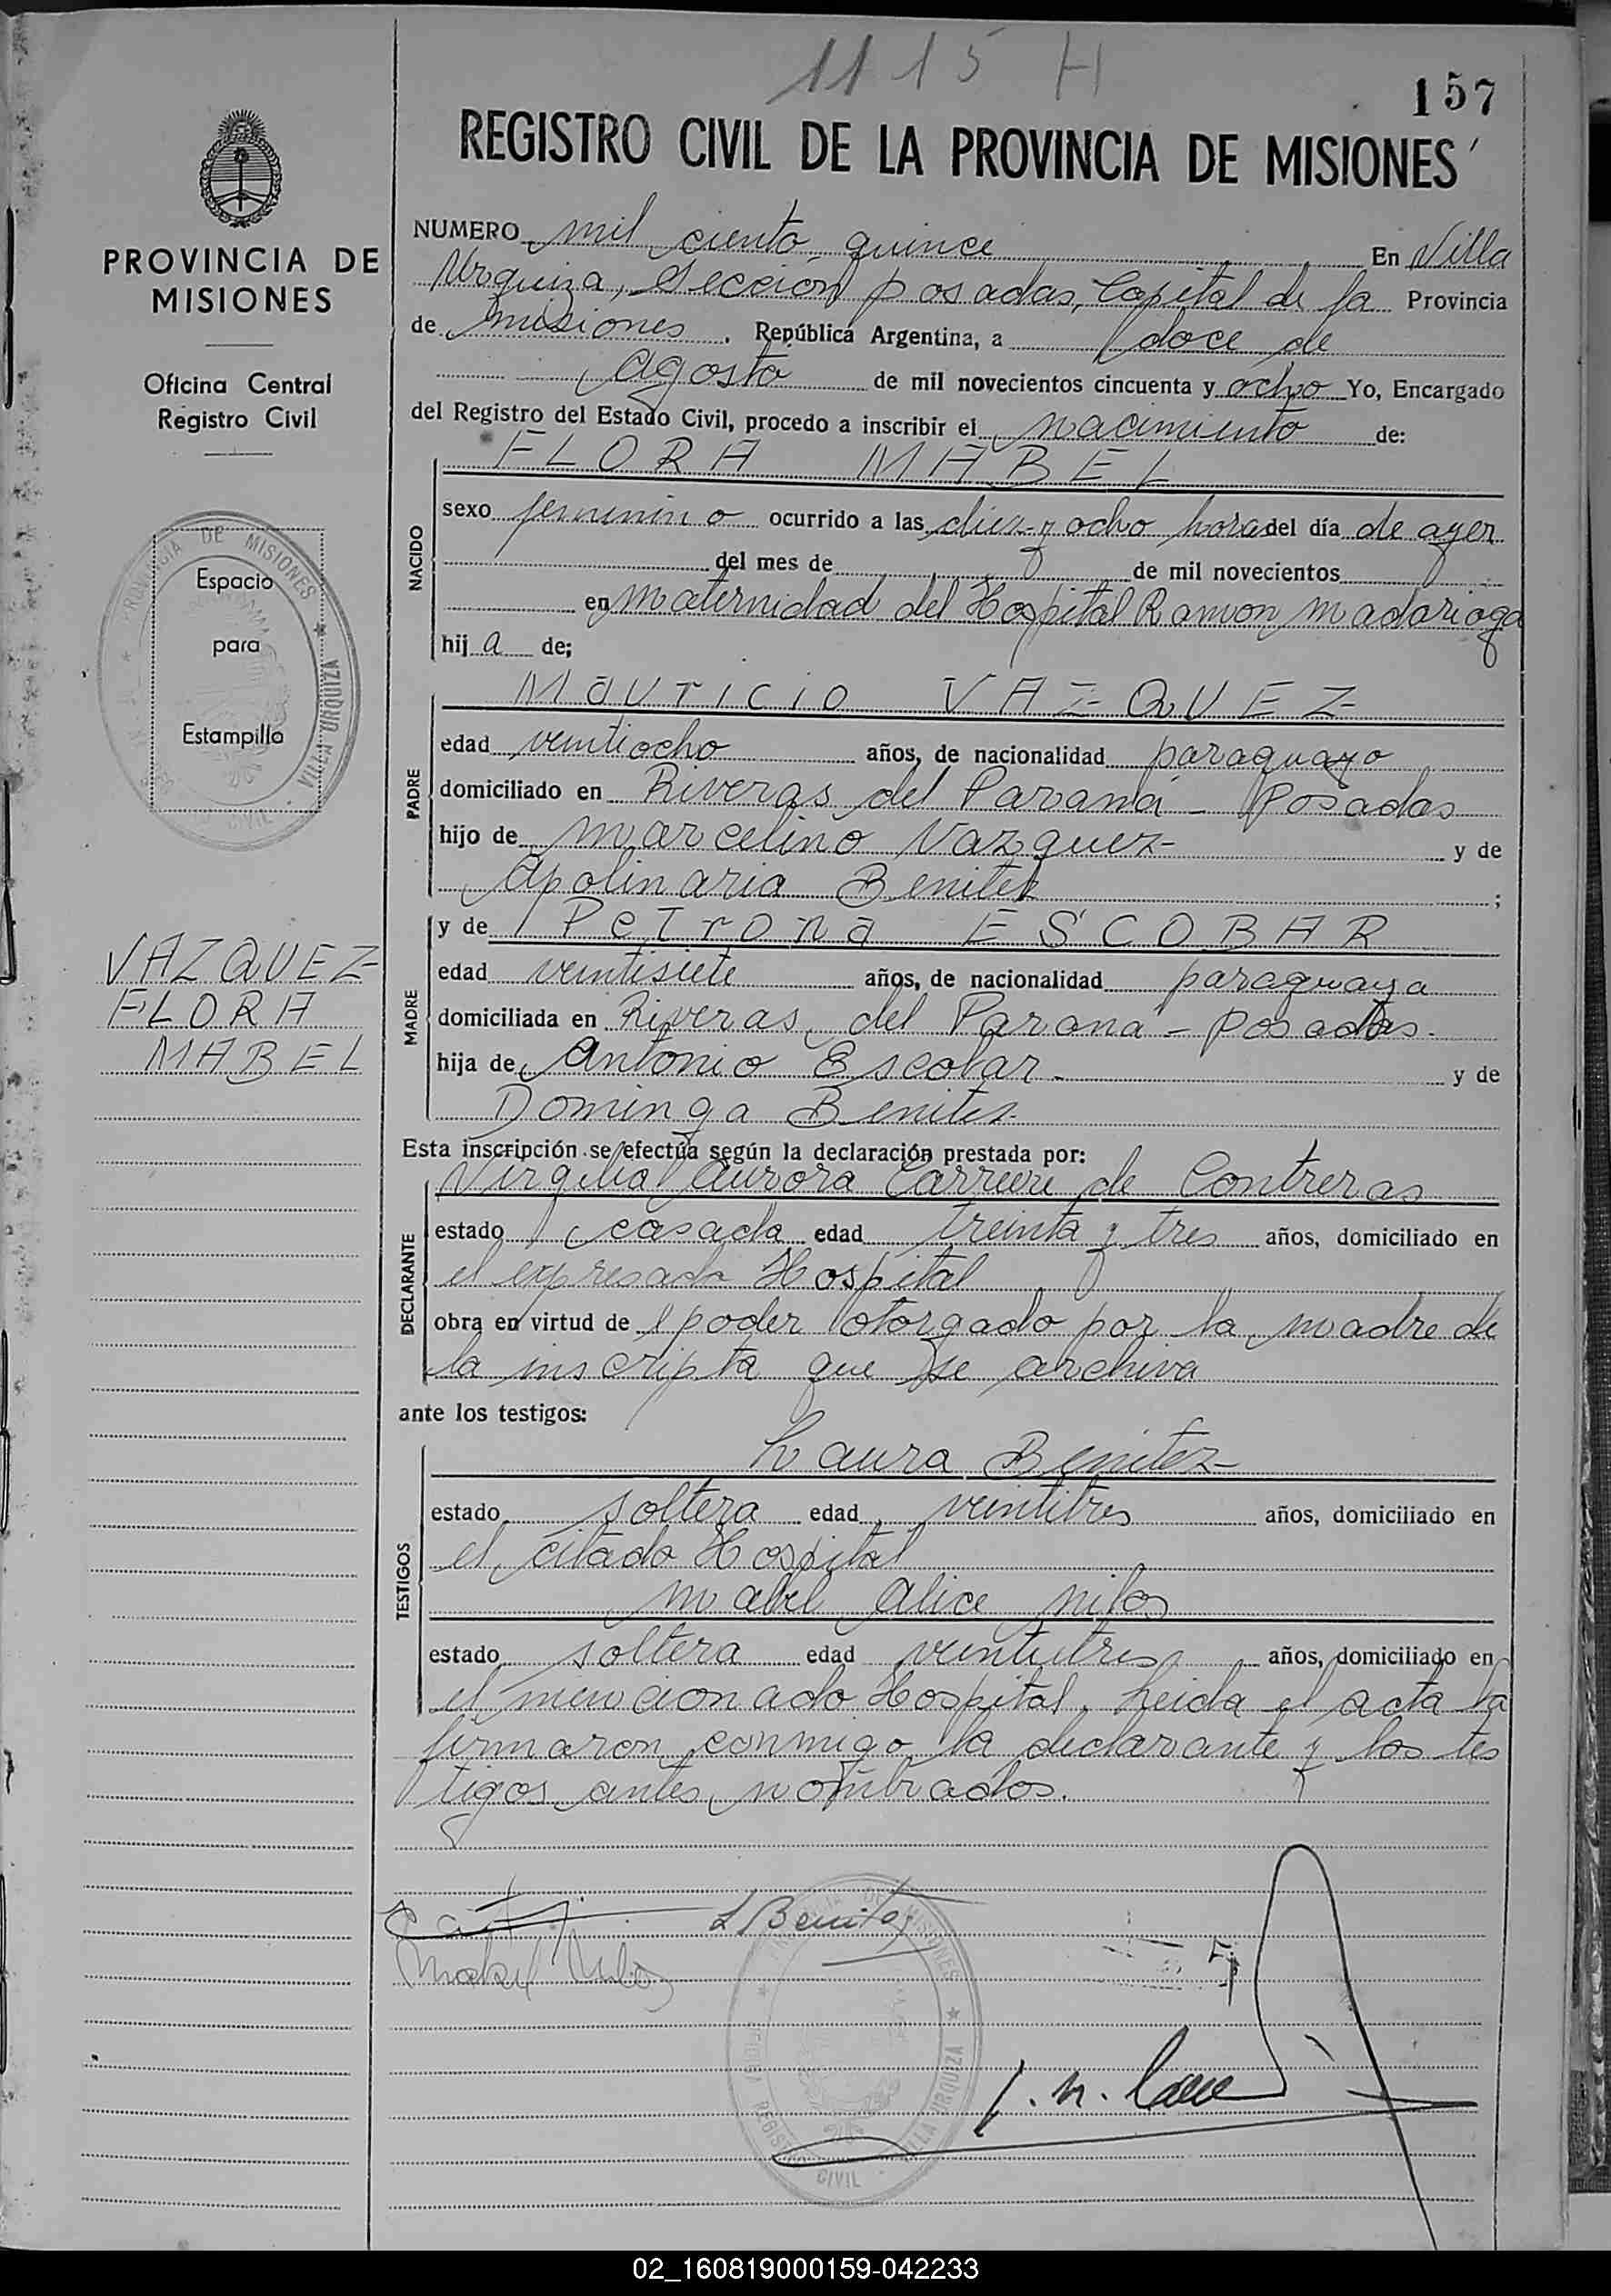 1115 H
157
REGISTRO CIVIL DE LA PROVINCIA DE MISIONES
PROVINCIA DE
MISIONES
Oficina Central
Registro Civil
PROVINCIA DE MISIONES
VILLA URQUIZA
CIVIL
Espacio
para
Estampilla
VAZQUEZ
FLORA
MABEL
NUMERO mil ciento quince En Villa
Urquiza, Sección posadas, Capital de la Provincia
de misiones . República Argentina, a doce de
Agosto de mil novecientos cincuenta y ocho Yo, Encargado
del Registro del Estado Civil, procedo a inscribir el nacimiento de:
FLORA MABEL
NACIDO
sexo femenino ocurrido a las diez y ocho horas del día de ayer
del mes de de mil novecientos
en maternidad del Hospital Ramon madariaga
hij a de;
Mauricio VAZQUEZ
PADRE
edad veintiocho años, de nacionalidad paraguayo
domiciliado en Riveras del Paraná - Posadas
hijo de marcelino Vazquez y de
Apolinaria Benitez ;
y de Petrona ESCOBAR
MADRE
edad veintisiete años, de nacionalidad paraguaya
domiciliada en Riveras del Parana - posadas.
hija de Antonio Escobar y de
Dominga Benitez
Esta inscripción se efectúa según la declaración prestada por:
Virgilia Aurora Carrere de Contreras
DECLARANTE
estado casada edad treinta y tres años, domiciliado en
el expresado Hospital
obra en virtud de poder otorgado por la madre de
la inscripta que se archiva
ante los testigos:
Laura Benitez
TESTIGOS
estado soltera edad veintitres años, domiciliado en
el citado Hospital
mabel Alice milos
estado soltera edad veintitres años, domiciliado en
el mencionado Hospital. Leida el acta la
firmaron conmigo la declarante y los tes
tigos antes nombrados.
L Benitez
Mabel Milos
PROVINCIA DE MISIONES
REGISTRO CIVIL
VILLA URQUIZA
02_160819000159-042233